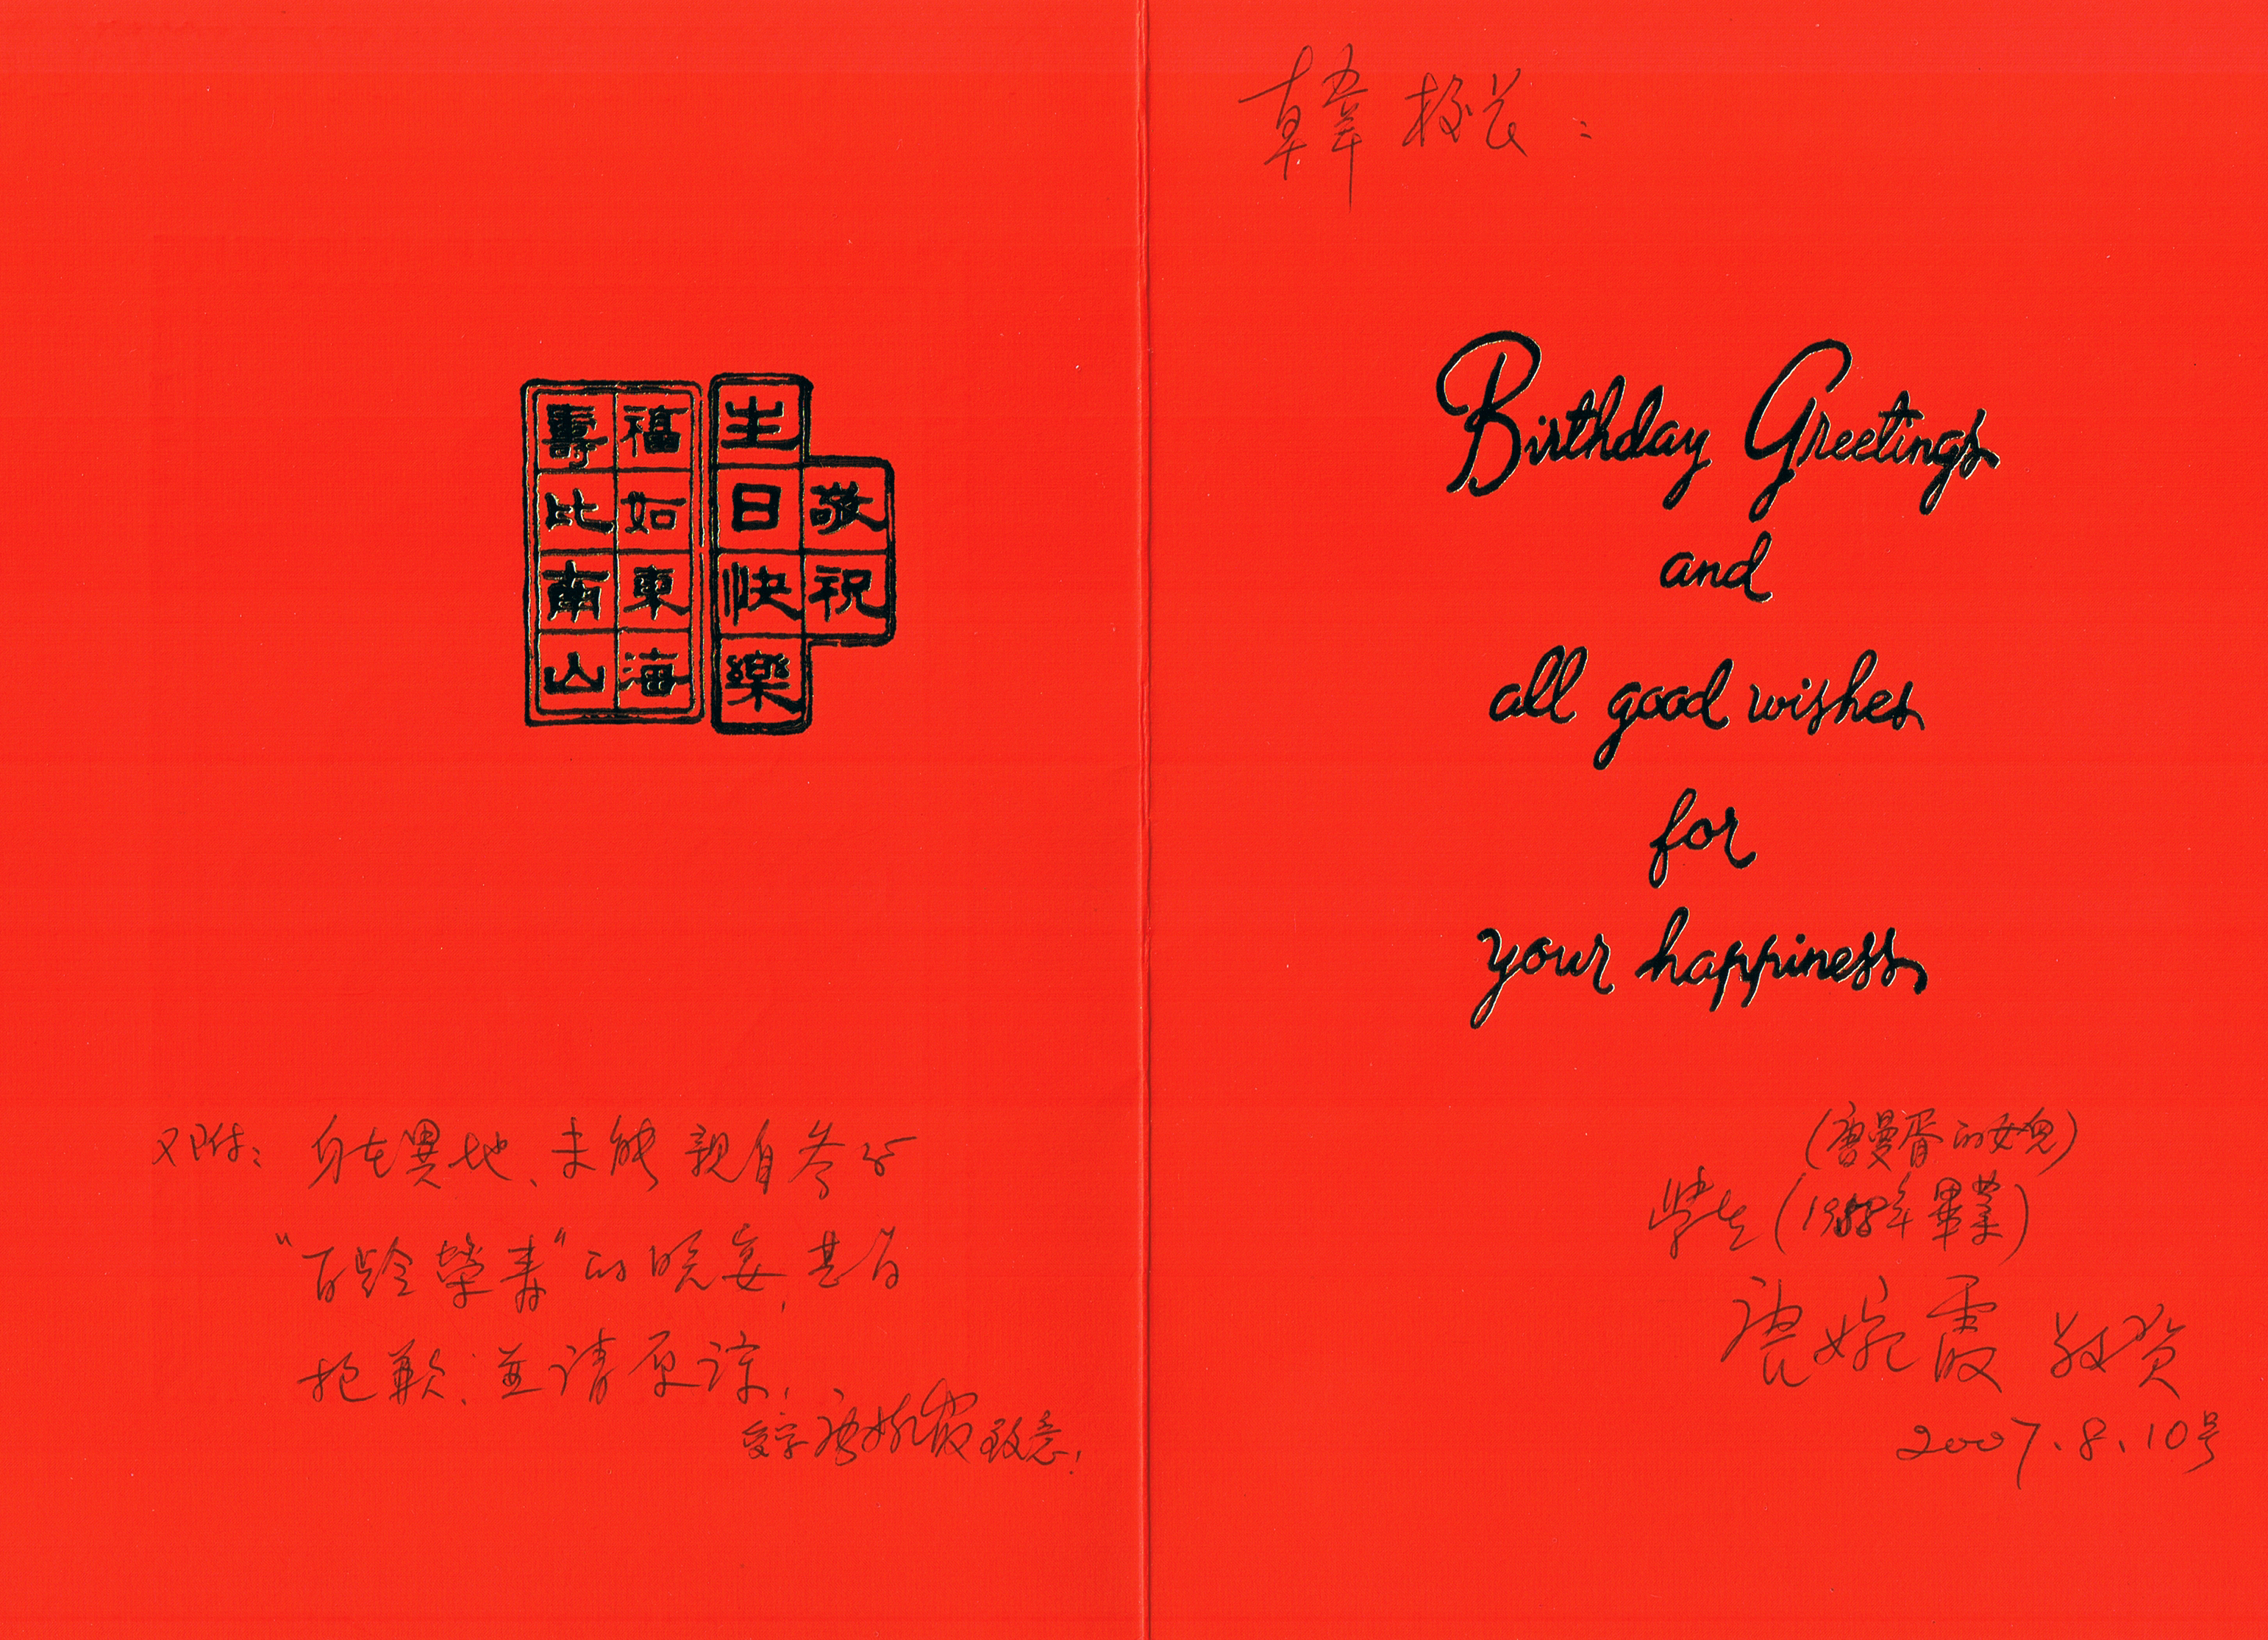 敬祝
生日快樂
福如東海
壽比南山
又附：身在異地、未能親自參加
"百齡榮壽"的晚宴，甚為
抱歉；並請原諒，
受字 唐婉霞 致意！
韓校长：
Birthday Greetings
and
all good wishes
for
your happiness
(唐曼胥的女兒)
學生(1958年畢業)
唐婉霞 敬賀
2007.8.10号